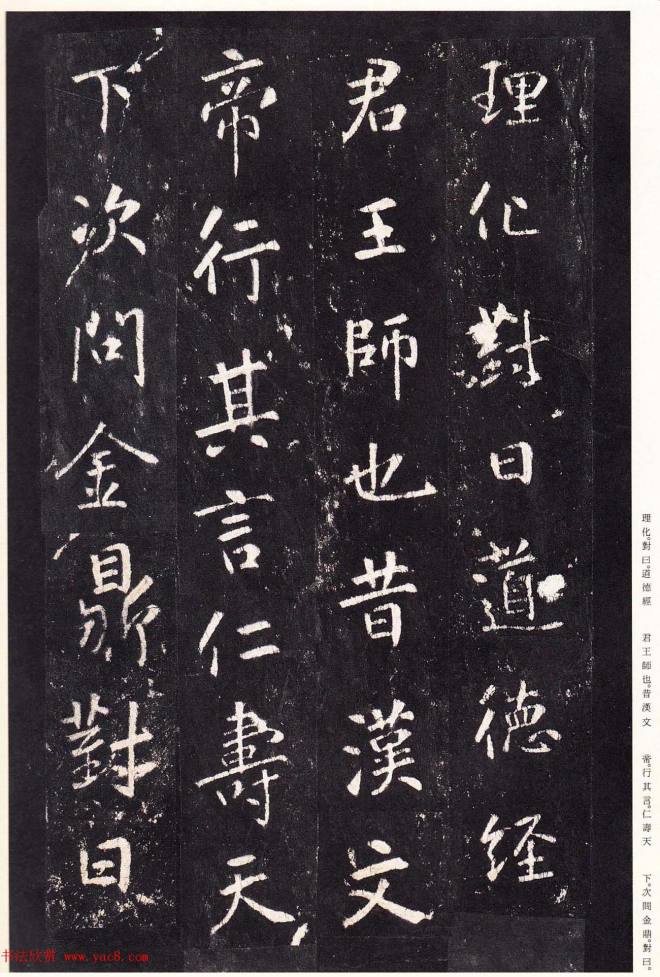 理化對曰道德經
君王師也昔漢文
帝行其言仁壽天
下次問金鼎對曰
理化。對曰。道德經
君王師也。昔漢文
帝。行其言。仁壽天
下。次問金鼎。對曰。
书法欣赏 www.yac8.com